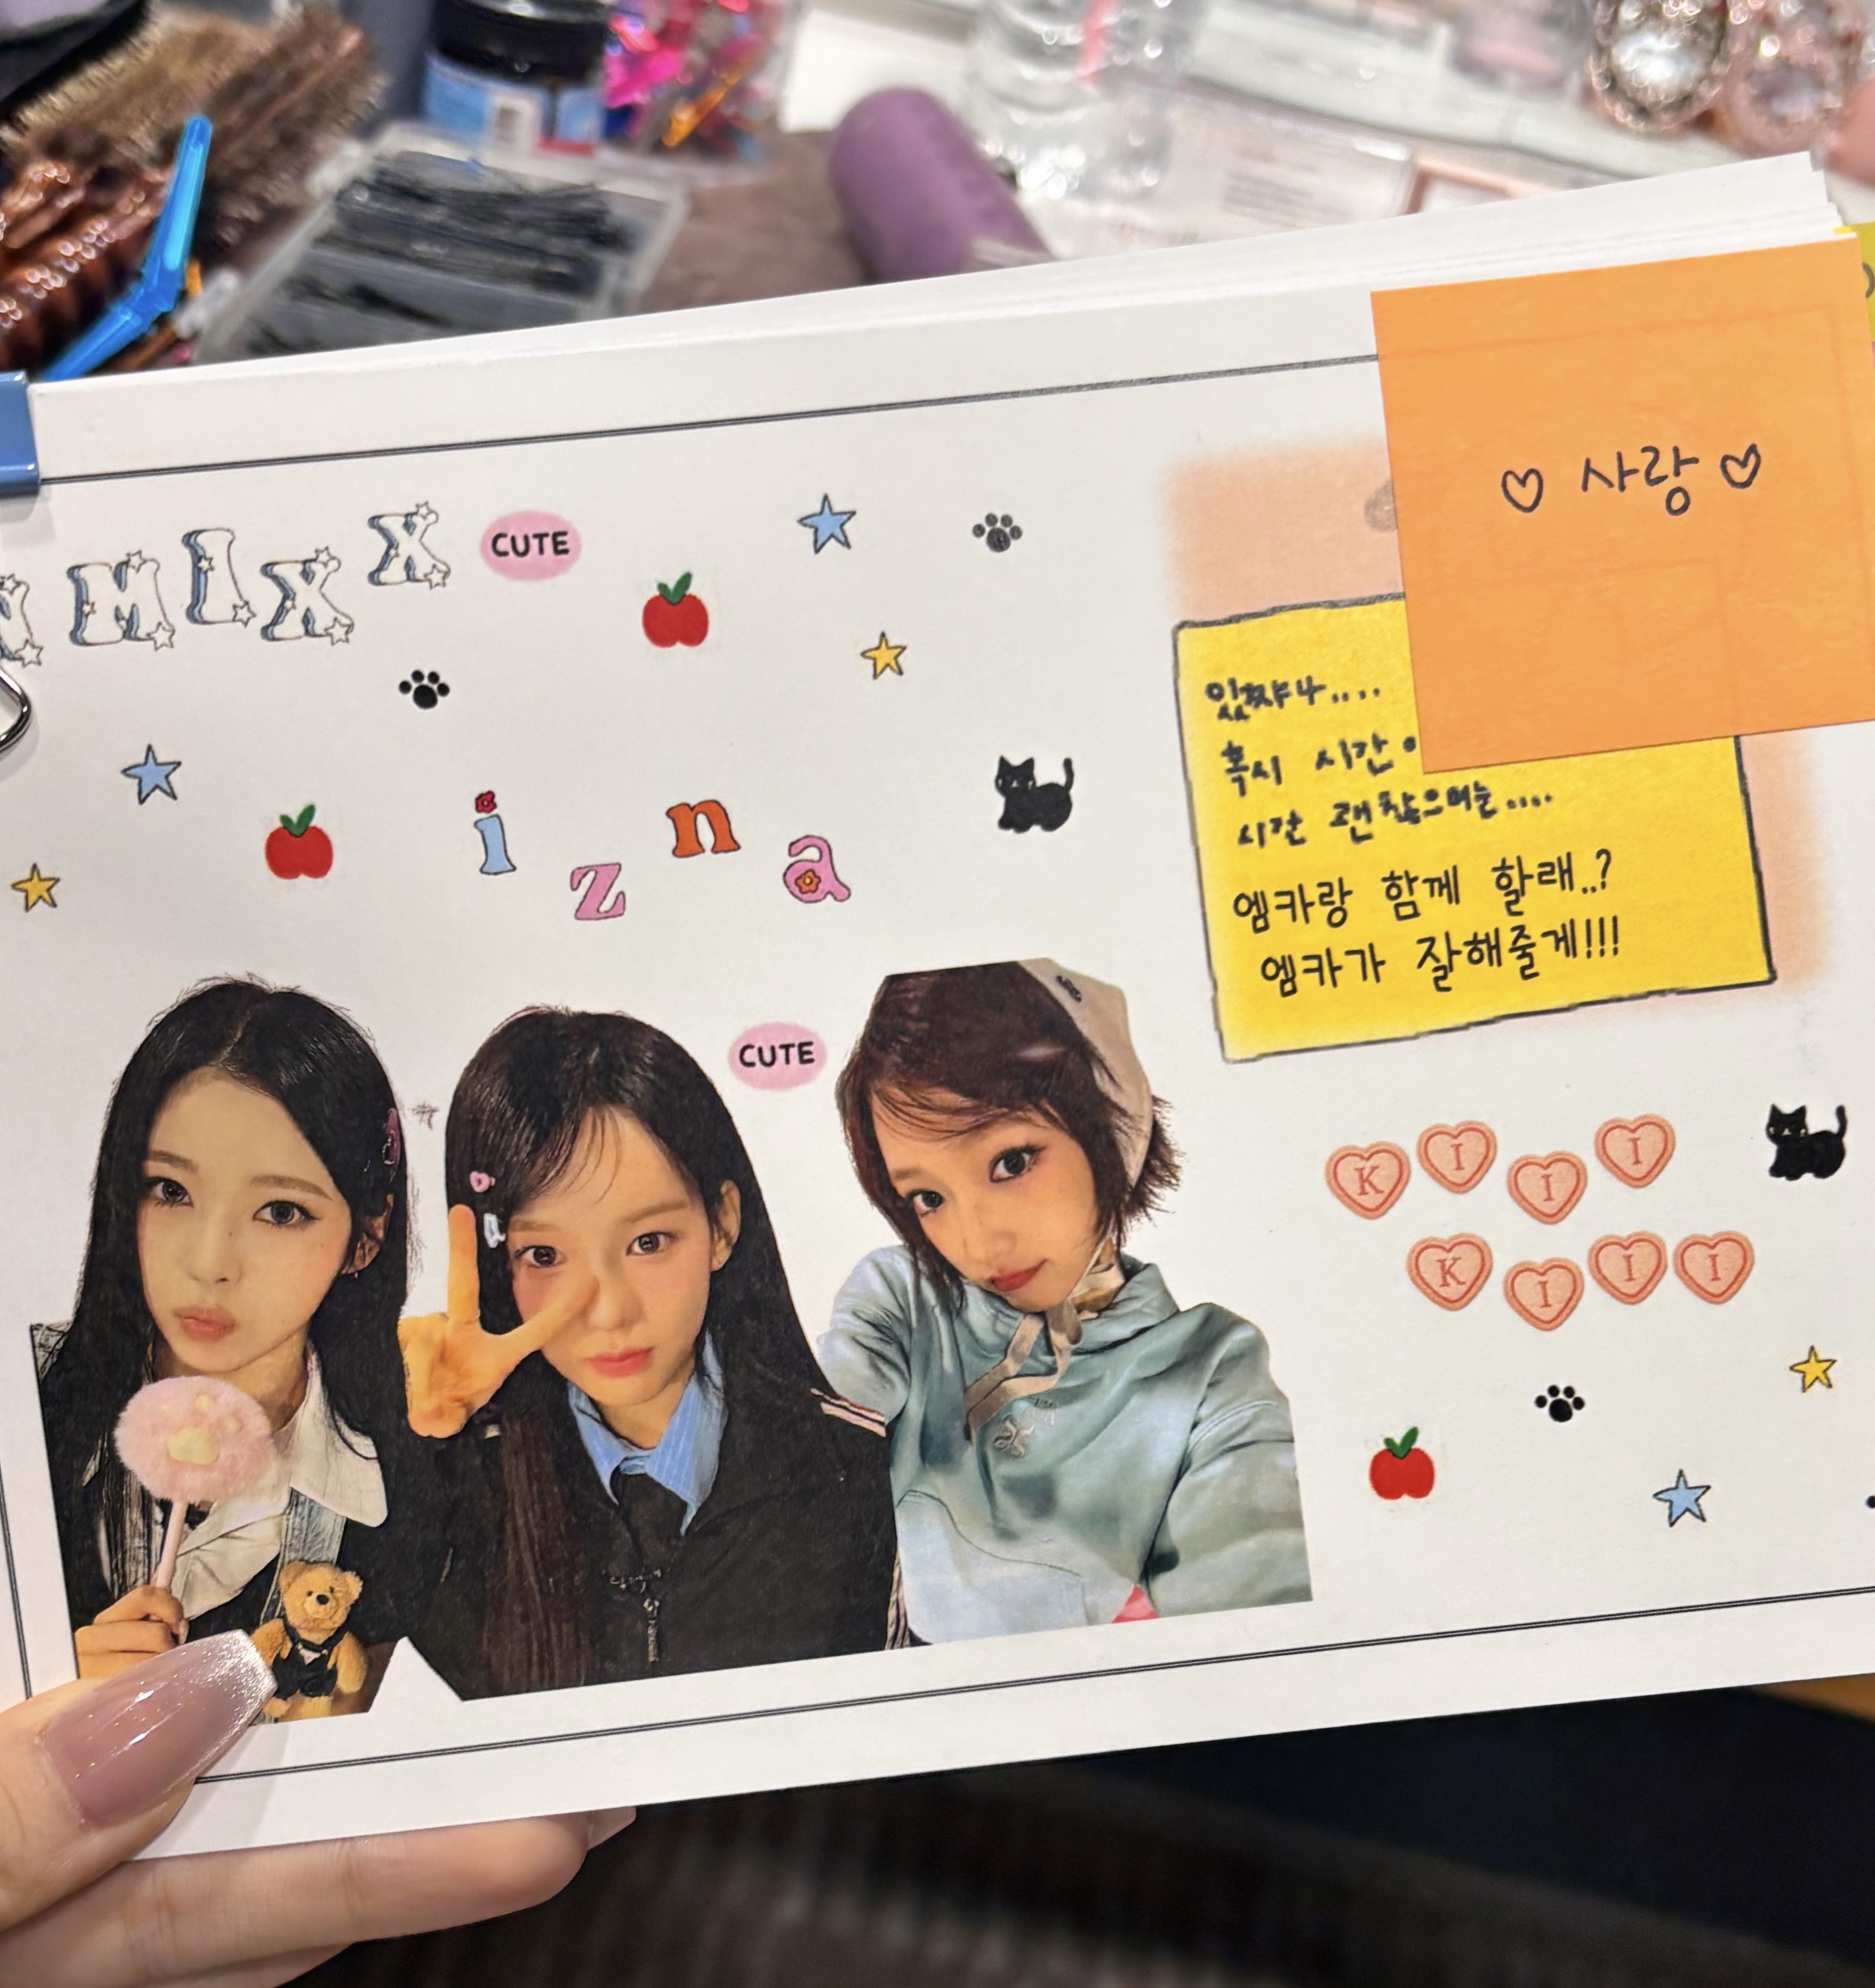 NMIXX
CUTE
izna
CUTE
♡ 사랑 ♡
있쨔나....
혹시 시간
시간 괜찮으며는....
엠카랑 함께 할래..?
엠카가 잘해줄게!!!
KIII
KIII